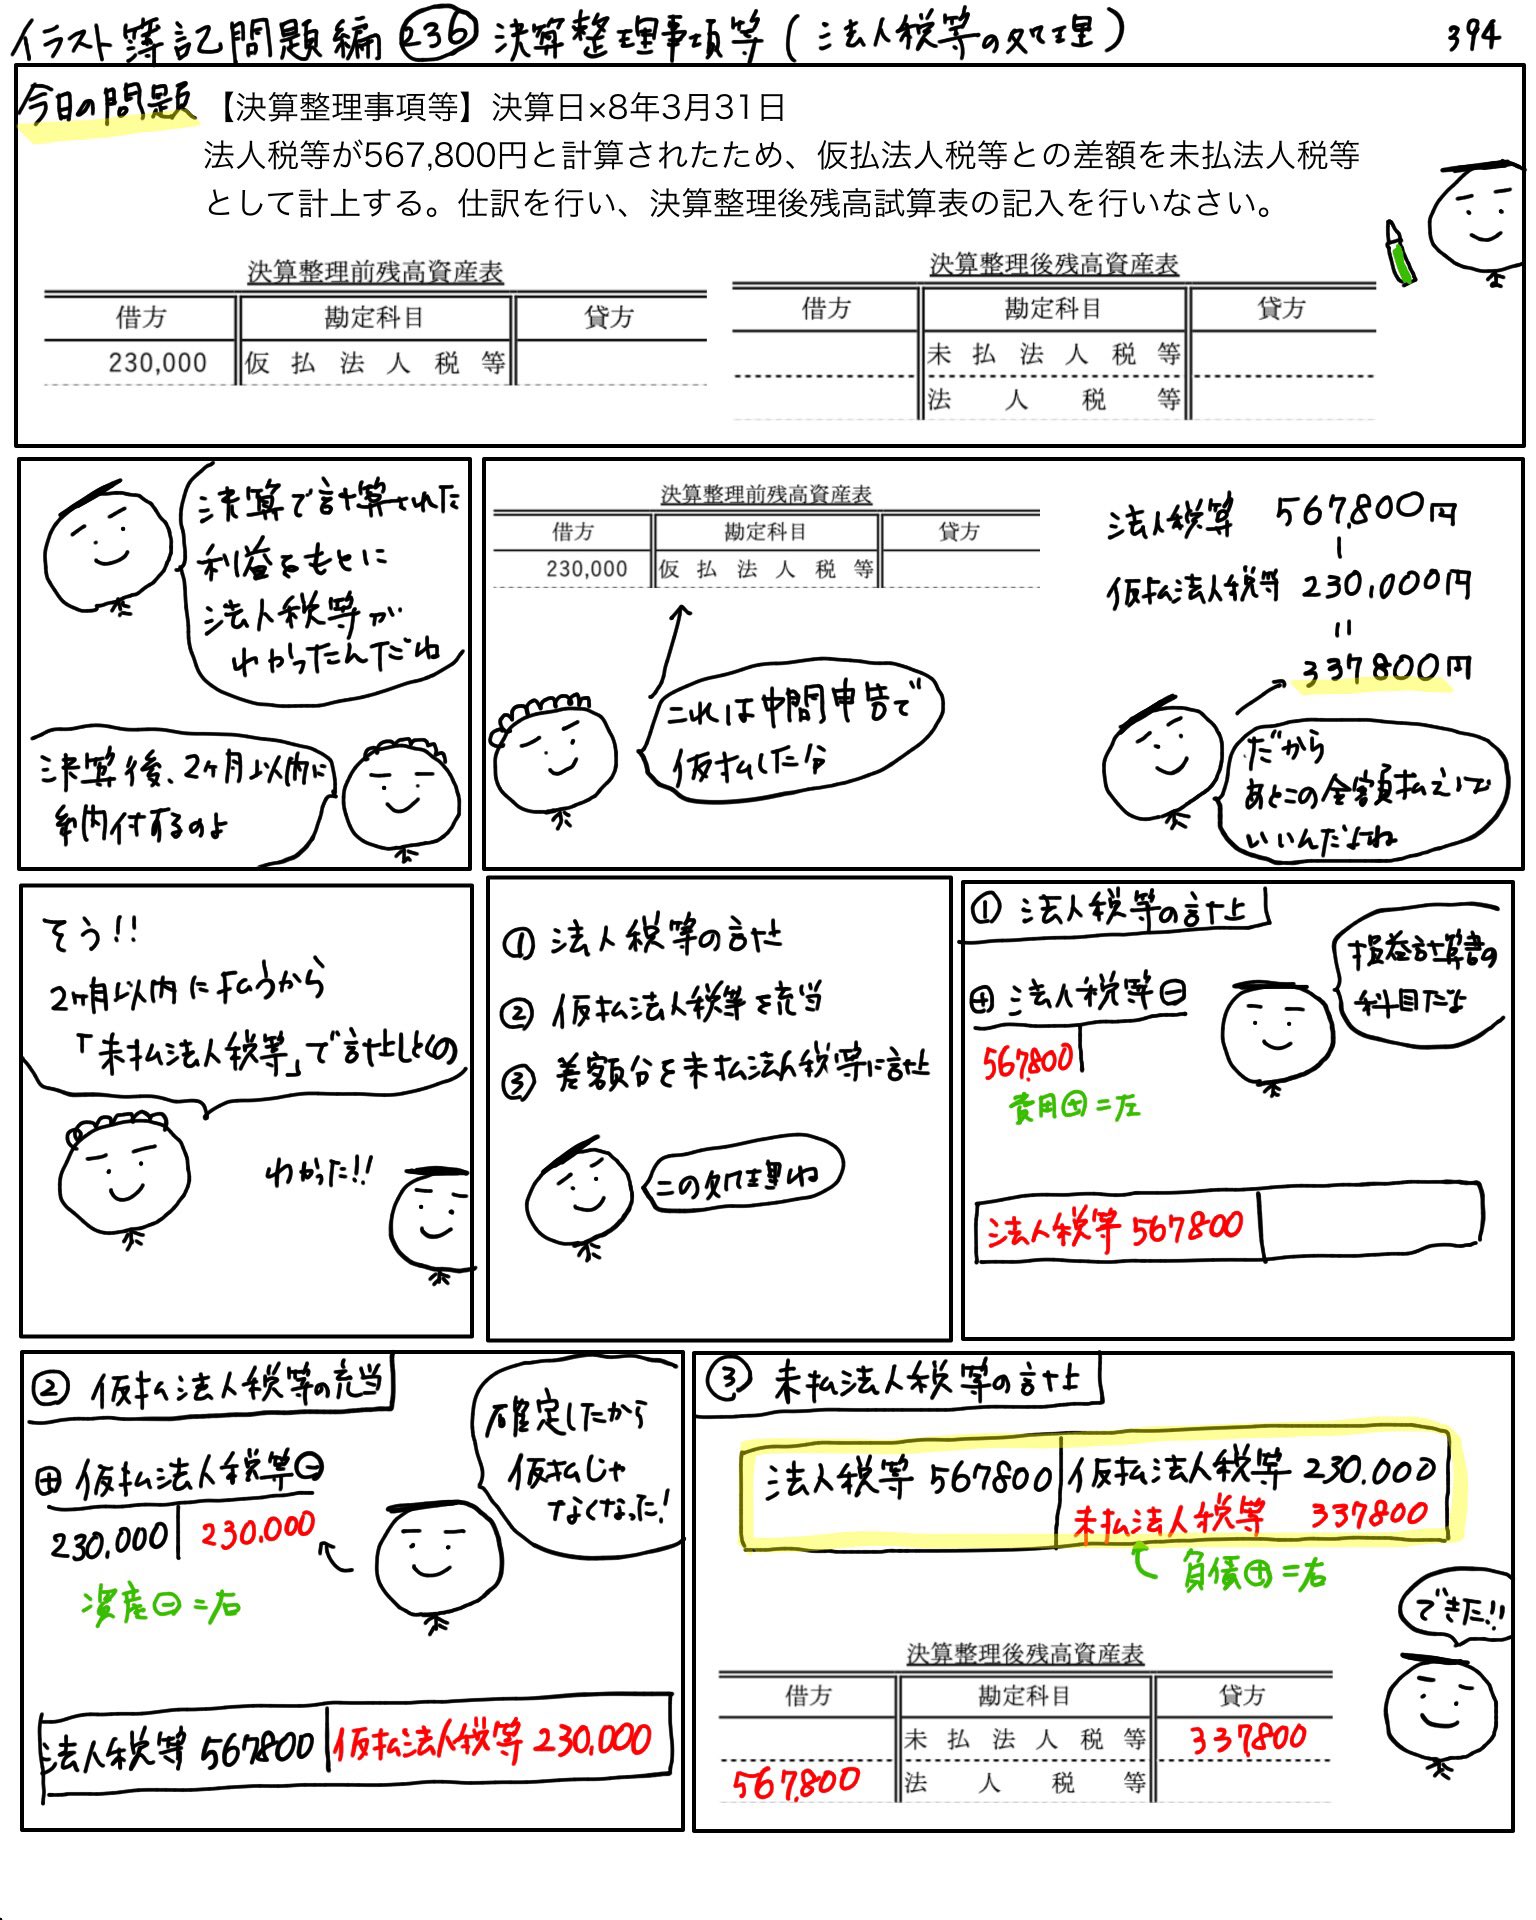 イラスト簿記問題編 236 決算整理事項等(法人税等の処理)
394
今日の問題
【決算整理事項等】決算日×8年3月31日
法人税等が567,800円と計算されたため、仮払法人税等との差額を未払法人税等
として計上する。仕訳を行い、決算整理後残高試算表の記入を行いなさい。
決算整理前残高資産表
借方 勘定科目 貸方
230,000 仮払法人税等
決算整理後残高資産表
借方 勘定科目 貸方
未払法人税等
法人税等
決算で計算された
利益をもとに
法人税等が
わかったんだね
決算後、2ヶ月以内に
納付するのよ
決算整理前残高資産表
借方 勘定科目 貸方
230,000 仮払法人税等
これは中間申告で
仮払した分
法人税等 567,800円
ー
仮払法人税等 230,000円
=
337800円
だから
あとこの金額払えば
いいんだよね
そう!!
2ヶ月以内に払うから
「未払法人税等」で計上しとくの
わかった!!
① 法人税等の計上
② 仮払法人税等を充当
③ 差額分を未払法人税等に計上
この処理ね
① 法人税等の計上
⊕ 法人税等 ⊖
567,800
費用⊕=左
損益計算書の
科目だよ
法人税等 567800
② 仮払法人税等の充当
⊕ 仮払法人税等 ⊖
230,000 230,000
資産⊖=右
確定したから
仮払じゃ
なくなった!
法人税等 567800 仮払法人税等 230,000
③ 未払法人税等の計上
法人税等 567800 仮払法人税等 230,000
未払法人税等 337800
負債⊕=右
できた!!
決算整理後残高資産表
借方 勘定科目 貸方
未払法人税等 337,800
567,800 法人税等